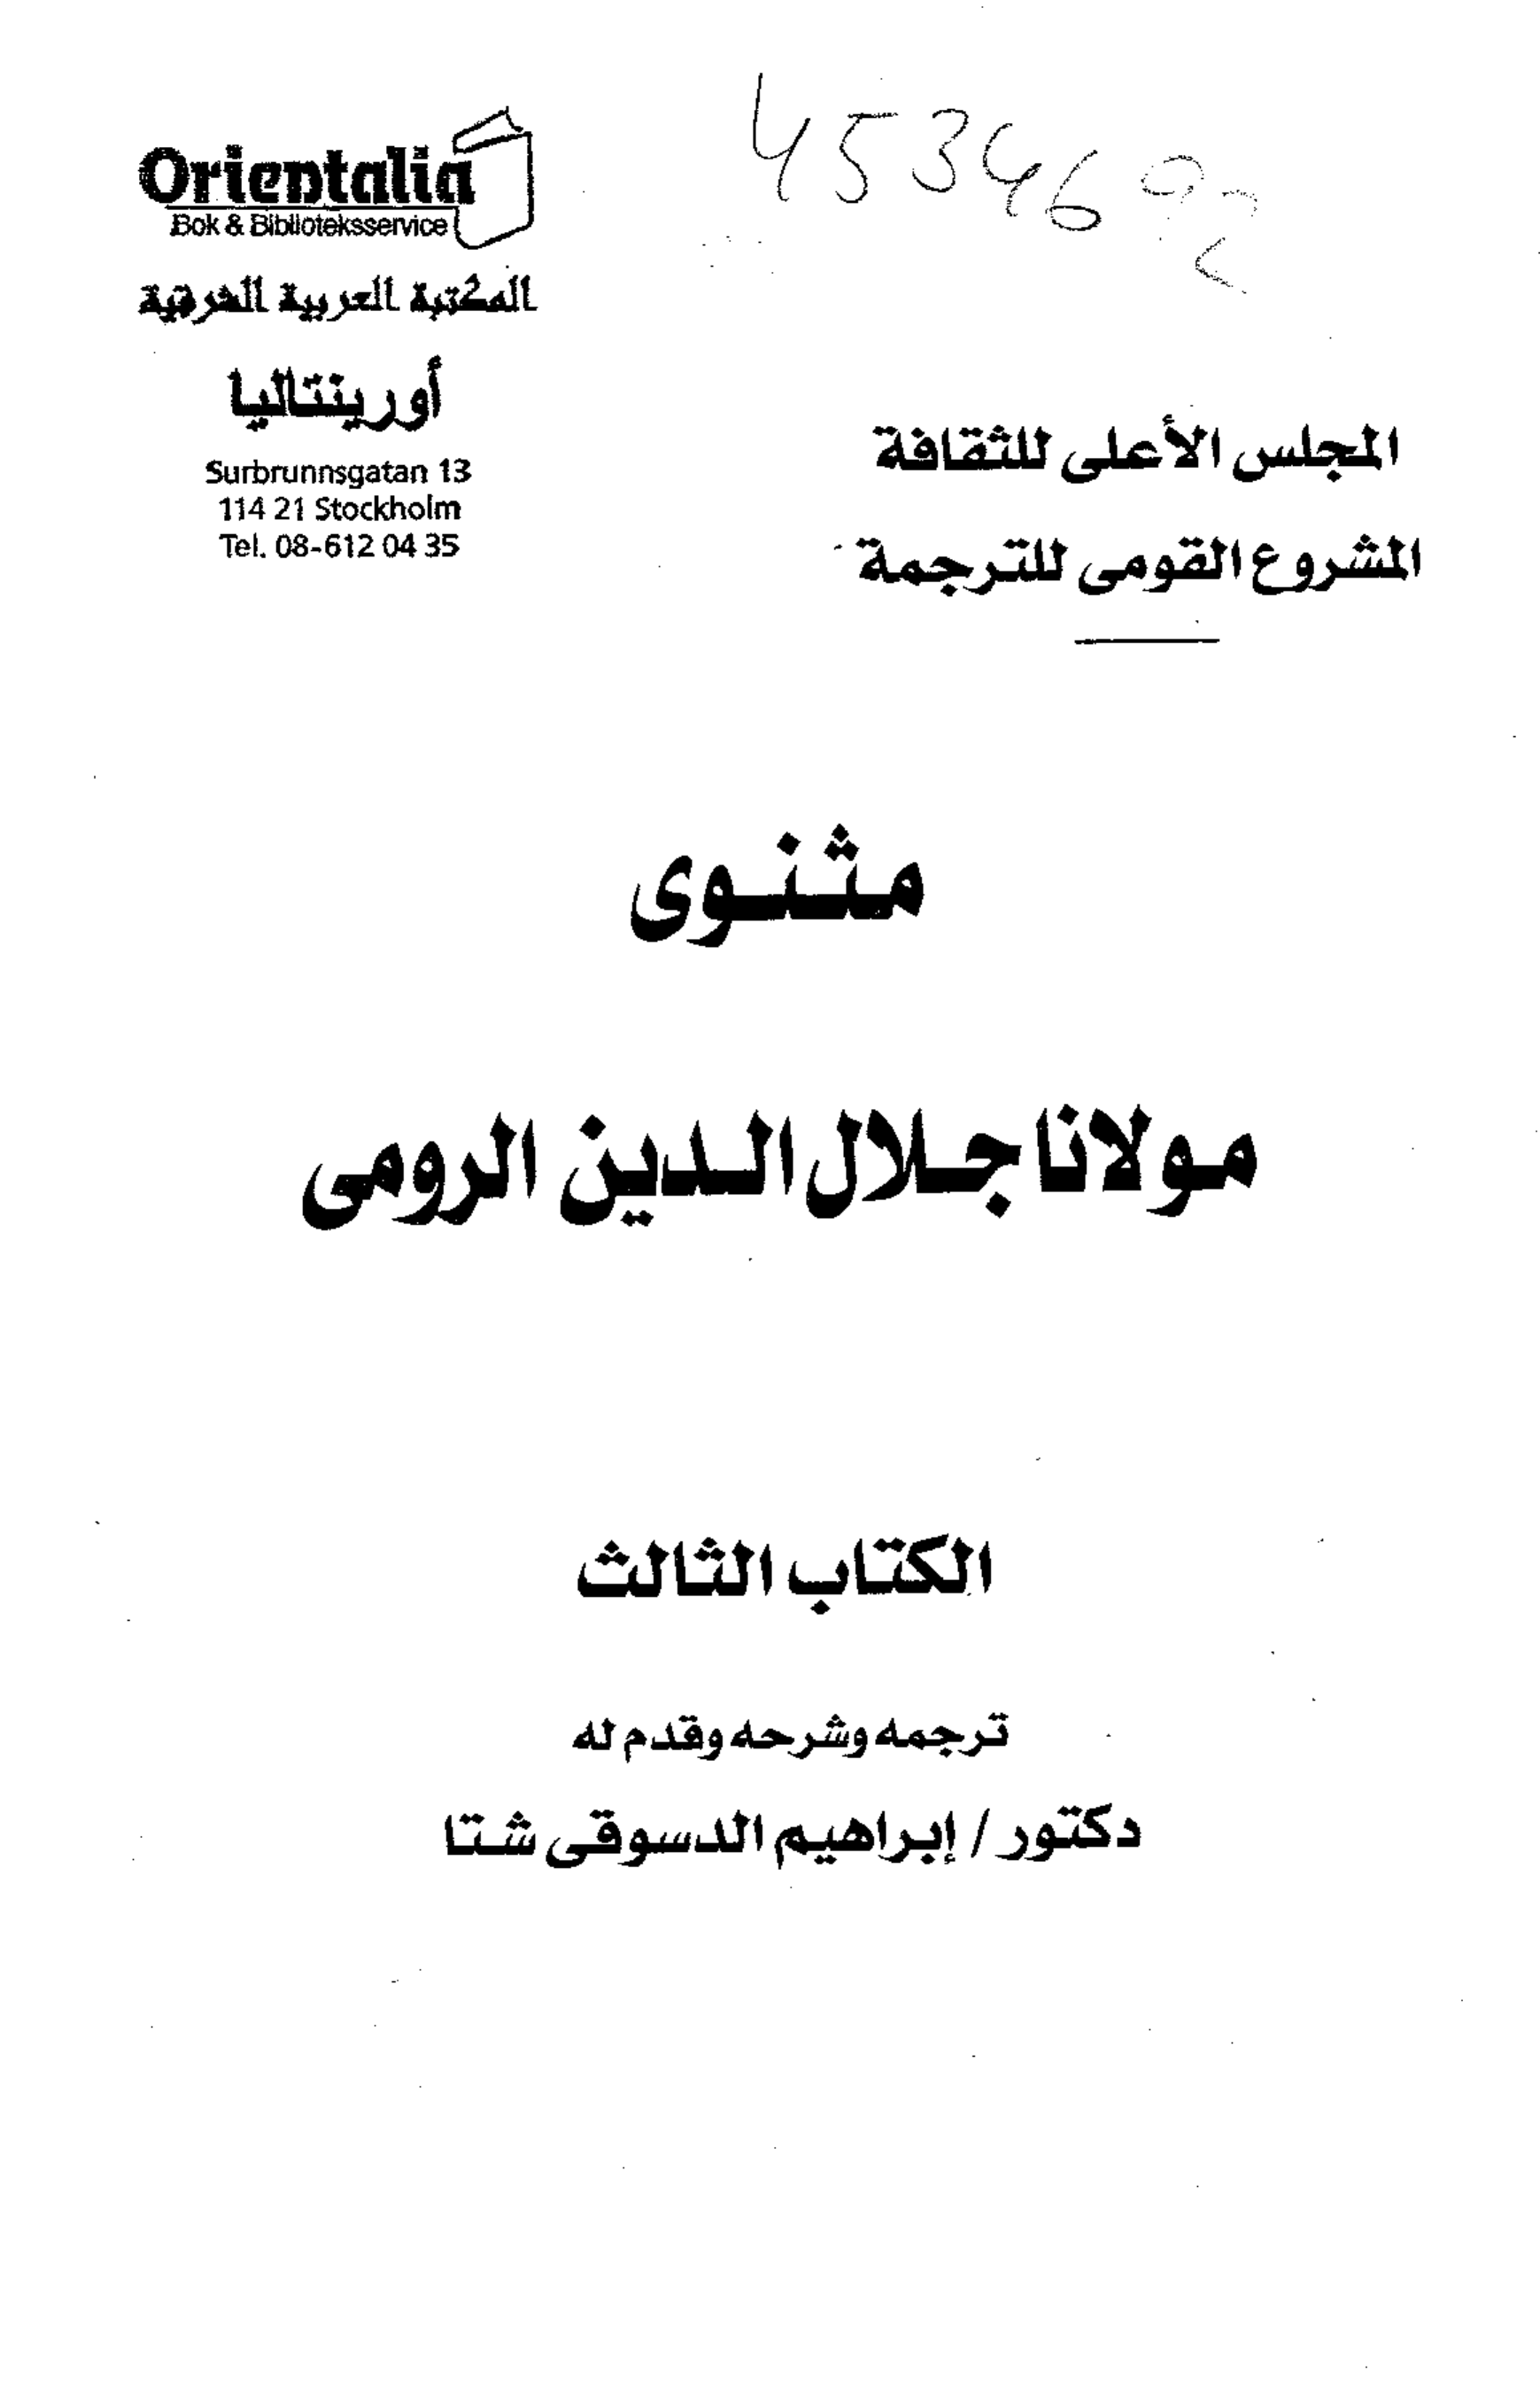 Orientalia
Bok & Biblioteksservice
المكتبة العربية الشرقية
أورينتاليا
Surbrunnsgatan 13
114 21 Stockholm
Tel. 08-612 04 35
المجلس الأعلى للثقافة
المشروع القومى للترجمة
مثنوى
مولانا جلال الدين الرومى
الكتاب الثالث
ترجمه وشرحه وقدم له
دكتور / إبراهيم الدسوقى شتا